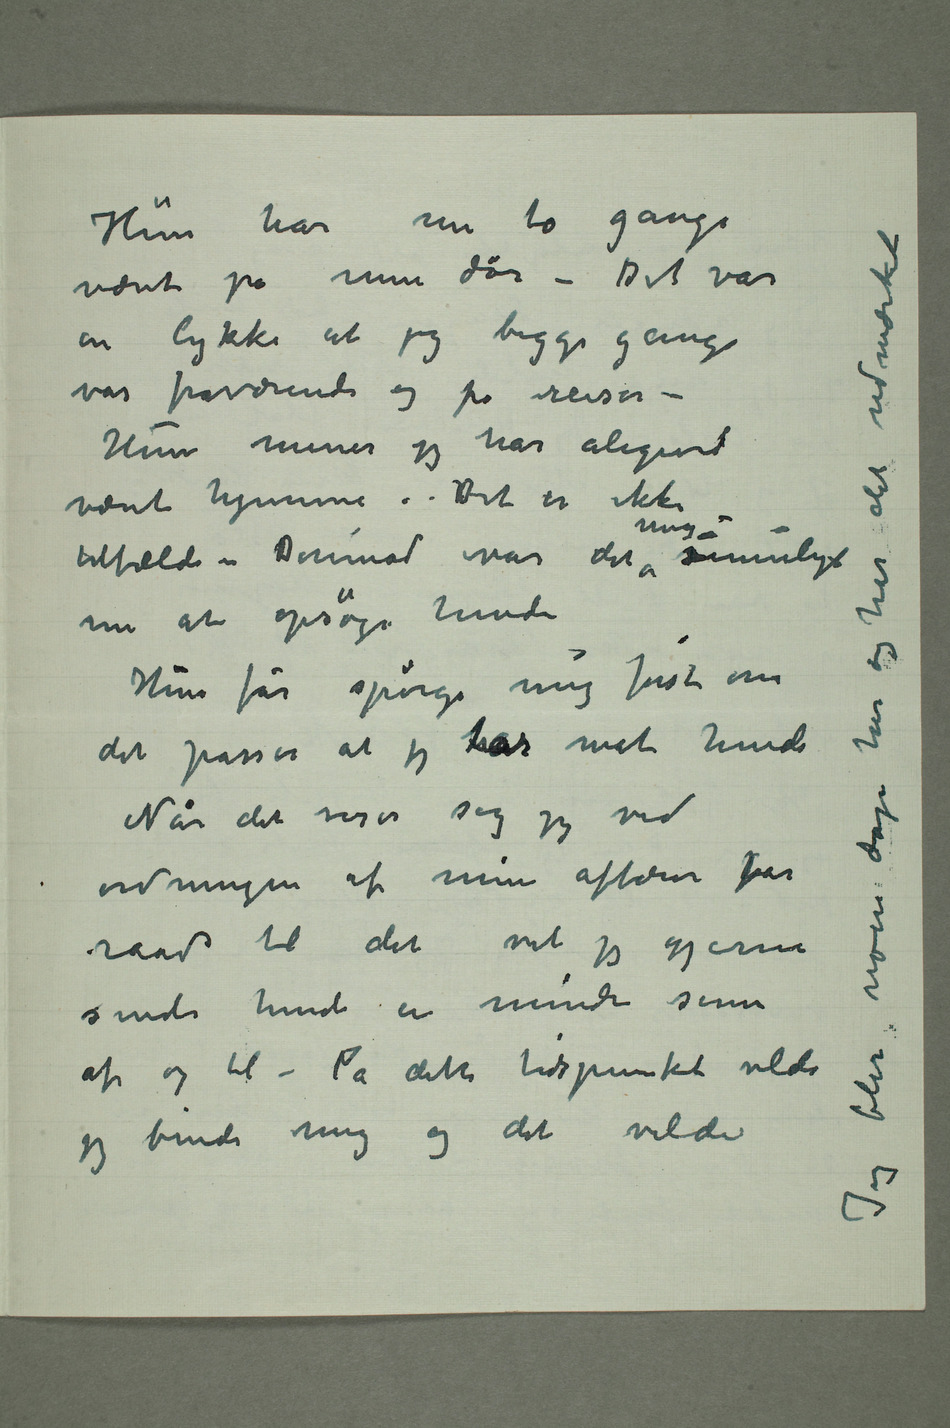 Hun har nu to gange
været på min dör – Det var
en lykke at jeg begge gange
var fraværende og på reiser –
Hun mener jeg har aligevel
været hjemme . . Det er ikke
tilfælde – Derimod var det mig umuligt
nu at opsöge hende
Hun får spörge mig först om
det passer at jeg har møte hende
Når det viser sig jeg ved
ordningen af mine affærer har
raad til det vil jeg gjerne
sende hende en mindre sum
af og til – På dette tidspunkt vilde
jeg binde mig og det vilde
Jeg blir noen dage her og har det udmærket